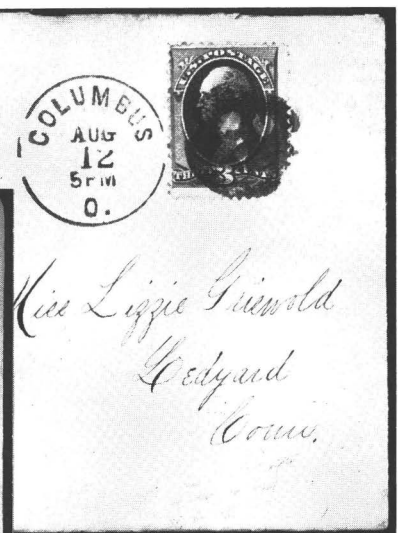 COLUMBUS
AUG
12
5 PM
O.
U.S. POSTAGE
3
Miss Lizzie Griswold
Ledyard
Conn.